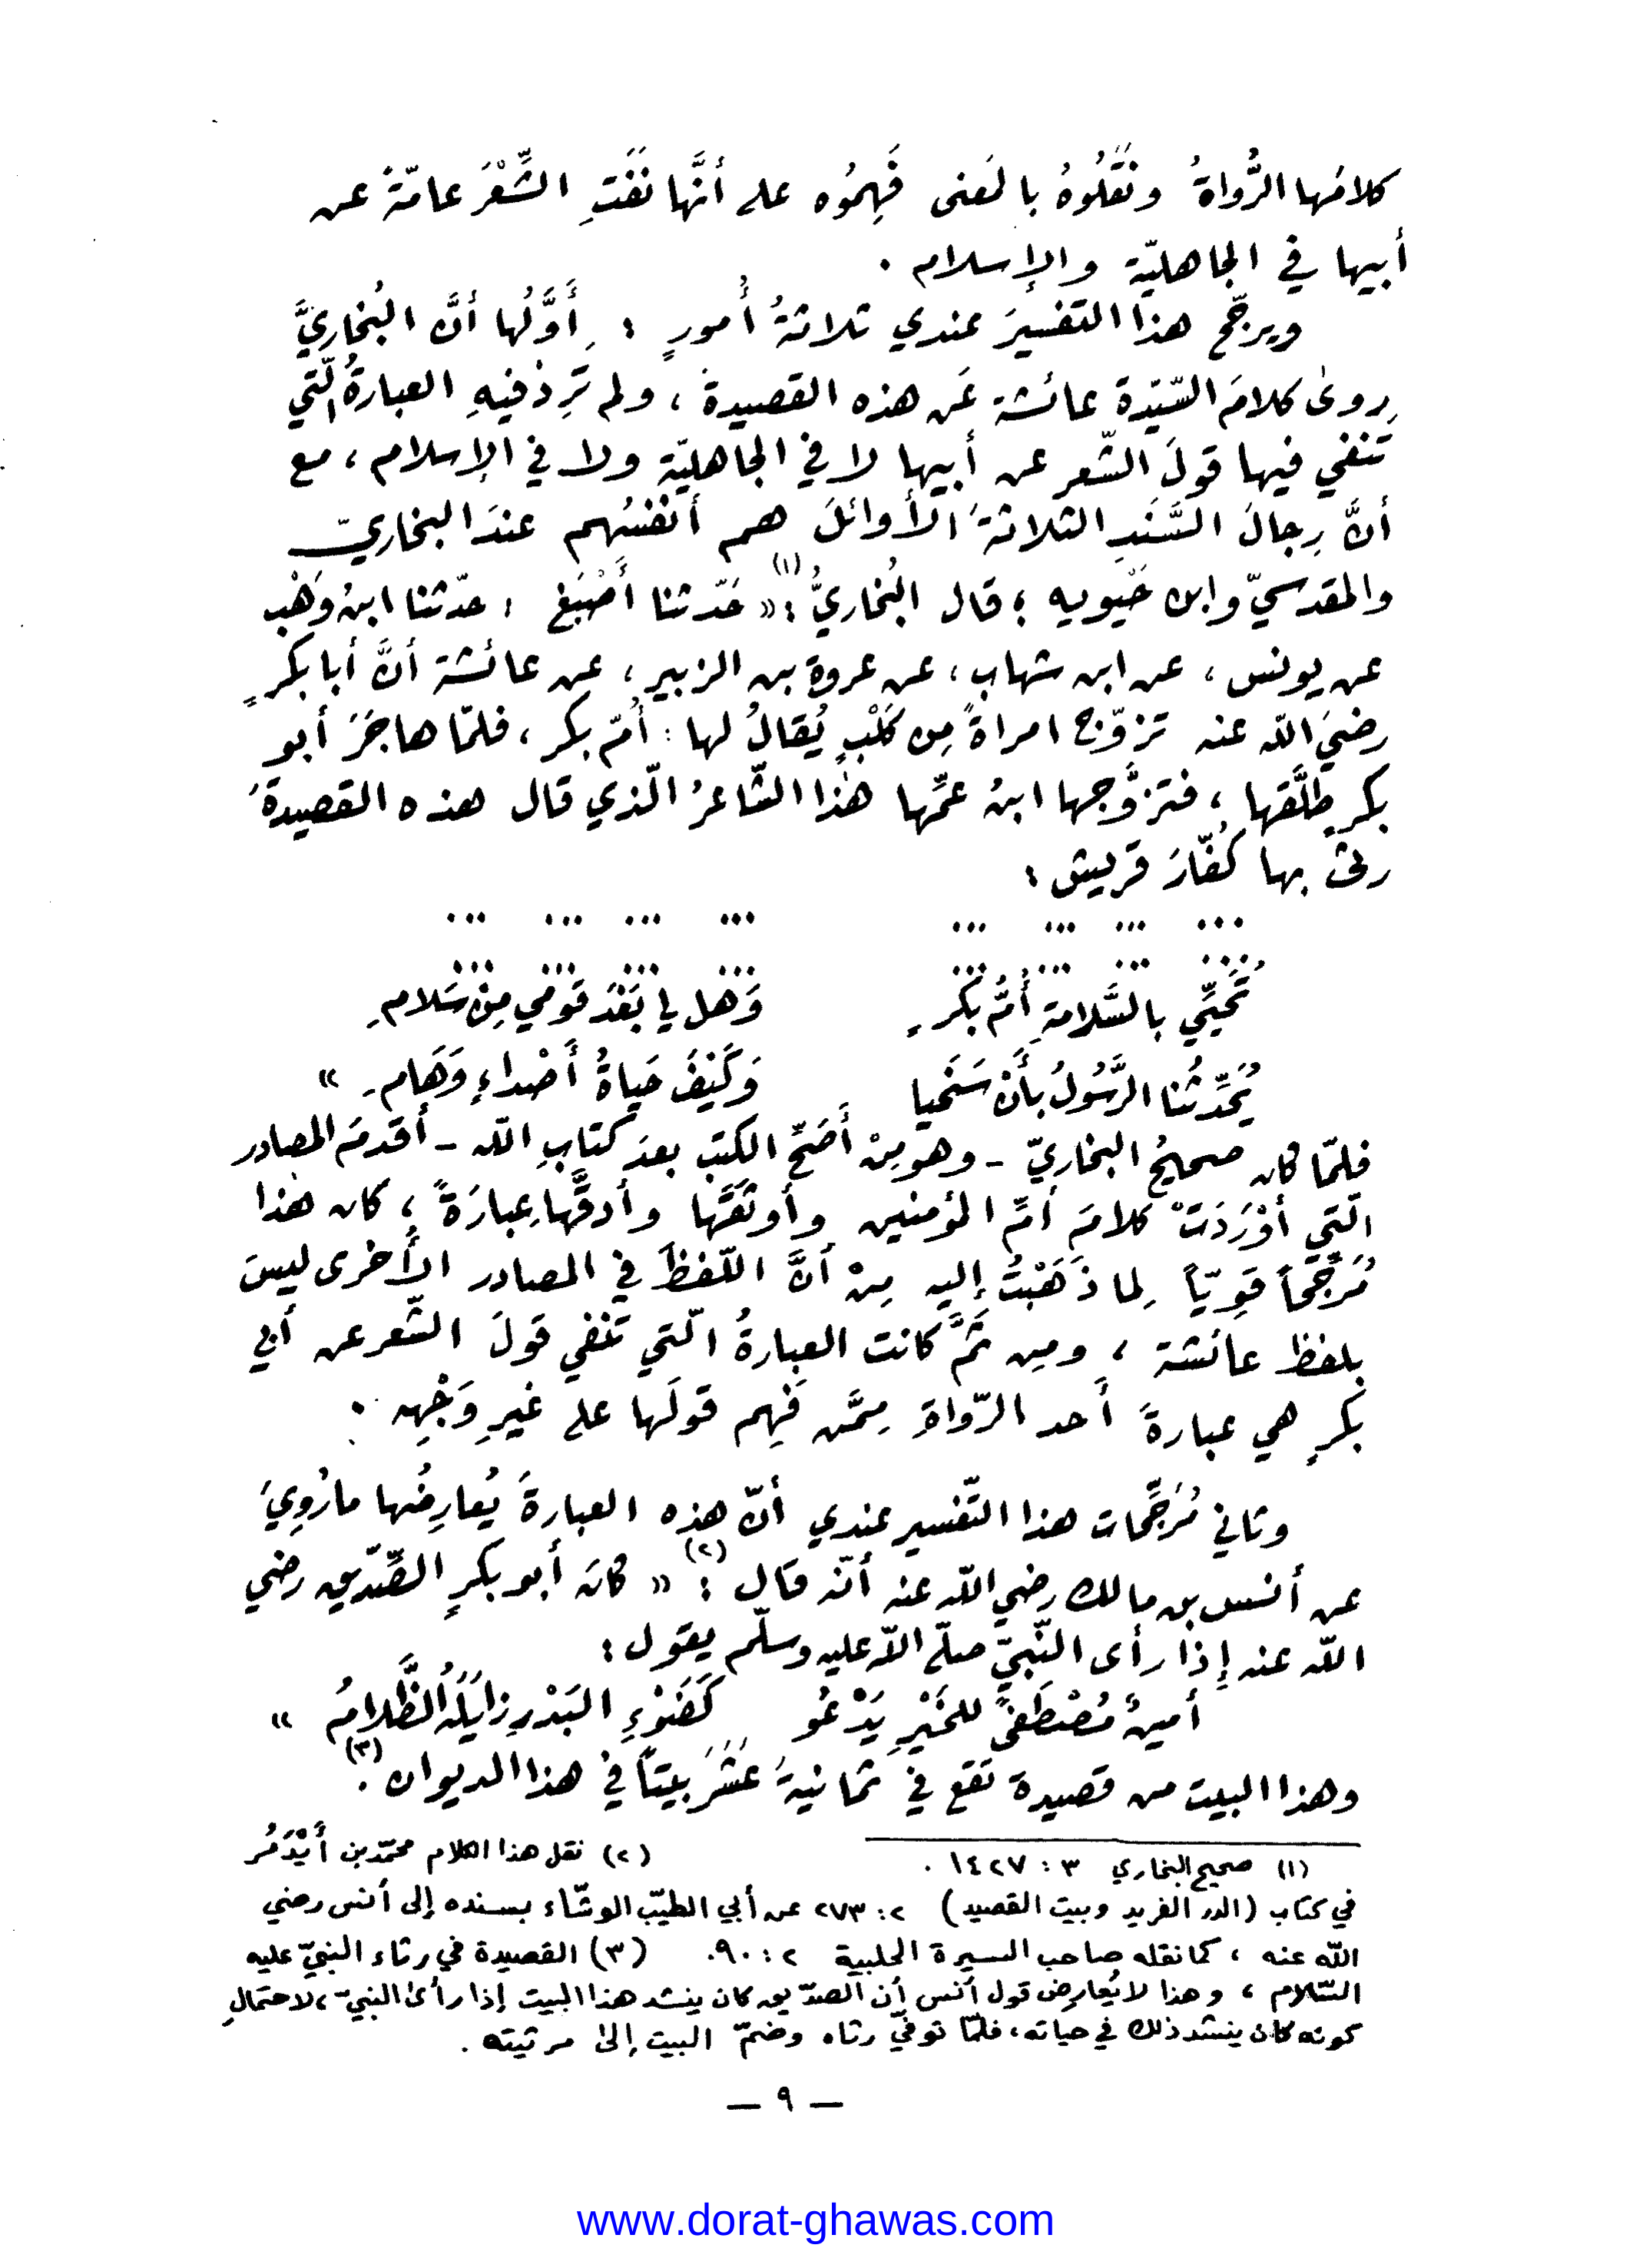 كلامَها الرُّواةُ ونَقَلُوهُ بالمَعنى فَهِمُوه على أنَّها نَفَتِ الشِّعْرَ عامّةً عن
أبيها في الجاهليّة والإسلام .
ويرجّح هذا التفسيرَ عندي ثلاثةُ أُمورٍ : أَوَّلُها أنَّ البُخاريَّ
روىٰ كلامَ السّيّدة عائشة عَن هذه القصيدة ، ولم تَرِدْ فيهِ العبارةُ الّتي
تَنفي فيها قولَ الشّعر عن أبيها لا في الجاهليّة ولا في الإسلام ، مع
أنَّ رِجالَ السَّنَدِ الثلاثةَ الأوائلَ هم أنفسُهم عندَ البخاريّ
والمقدسيّ وابن حَيّويه ؛ قال البُخاريُّ :(١) « حَدّثنا أَصْبَغ ، حدّثنا ابنُ وَهْب
عن يونس ، عن ابن شهاب ، عن عروة بن الزبير ، عن عائشة أنَّ أبا بكرٍ
رضيَ اللّه عنه تزوّج امراةً مِن كَلْبٍ يُقالُ لها : أُمّ بكر ، فلمّا هاجَرَ أبو
بكرٍ طلَّقها ، فتزوَّجها ابنُ عمِّها هٰذا الشّاعرُ الّذي قال هذه القصيدةَ
رثى بها كُفّارَ قريش :
... ... ... ... ... ... ... ...
... ... ... ... ... ... ... ...
تُحَيِّي بالسَّلامةِ أُمُّ بَكْرٍ وَهل لي بَعْدَ قَومي مِنْ سَلامِ
يُحَدِّثُنا الرَّسُولُ بأَنْ سَنَحيا وَكَيْفَ حَياةُ أَصْداءٍ وَهَامِ »
فلمّا كان صحيحُ البخاريّ - وهو مِنْ أَصَحِّ الكتب بعدَ كتابِ اللّه - أقدمَ المصادر
الّتي أَوْرَدَتْ كلامَ أمِّ المؤمنين وأوثقَها وأدقَّها عِبارَةً ، كان هٰذا
مُرَجِّحاً قَوِيّاً لِما ذَهَبْتُ إليه مِنْ أنَّ اللّفظَ في المصادر الأُخرى ليسَ
بلفظ عائشة ، ومِن ثَمَّ كانت العبارةُ الّتي تَنفي قولَ الشّعر عن أبي
بكرٍ هي عبارةَ أحد الرّواةِ مِمَّن فَهِم قولَها على غيرِ وَجْهِه .
وثاني مُرَجِّحات هذا التّفسير عندي أنّ هذِه العبارةَ يُعارِضُها ما رُوِيَ
عن أنس بن مالك رضي اللّه عنه أنّه قال :(٢) « كانَ أبو بكرٍ الصِّدّيق رضي
اللّه عنه إذا رأى النّبيّ صلّى اللّه عليه وسلّم يقول :
أمينٌ مُصْطَفىً للخَيْرِ يَدْعُو كَضَوْءِ البَدْرِ زايَلَهُ الظَّلامُ »
وهذا البيت من قصيدة تقع في ثمانيةَ عَشَرَ بيتاً في هذا الديوان (٣).
(١) صحيح البخاري ٣ : ١٤٢٧ . (٢) نقل هذا الكلام محمّد بن أَيْدَمُر
في كتاب (الدر الفريد وبيت القصيد) ٢ : ٢٧٣ عن أبي الطيّب الوشّاء بسنده إلى أنس رضي
اللّه عنه ، كما نقله صاحب السيرة الحلبية ٢ : ٩٠. (٣) القصيدة في رثاء النبيّ عليه
السّلام ، وهذا لا يُعارِض قول أنس أن الصدّيق كان ينشد هذا البيت إذا رأىٰ النبيّ ، لاحتمالِ
كونه كان ينشد ذلك في حياته ، فلمّا توفيّ رثاه وضمّ البيت إلىٰ مرثيته .
— ٩ —
www.dorat-ghawas.com